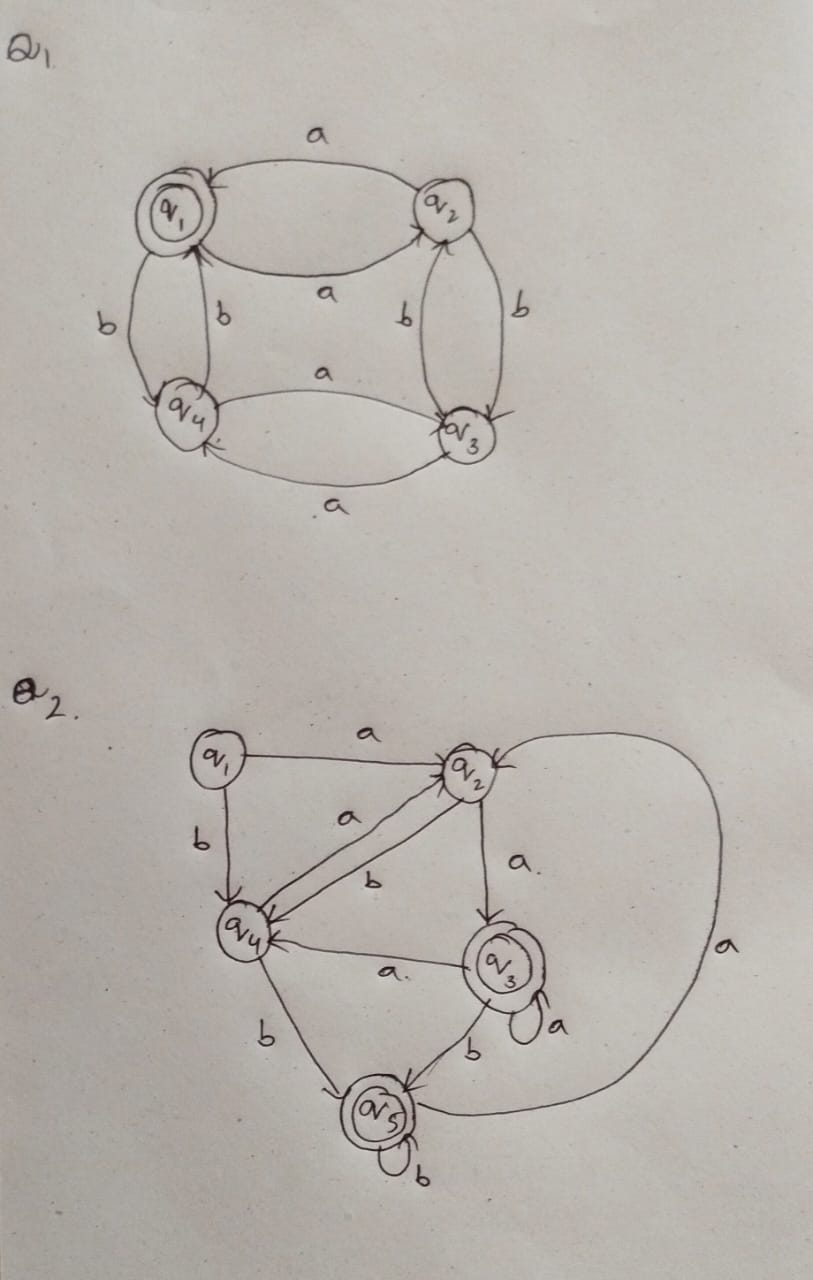 Q1
a
q1
q2
a
b
b
b
b
a
q4
q3
.a
Q2.
a
q1
q2
b
a
a.
b
q4
a.
q3
a
a
b
b
q5
b